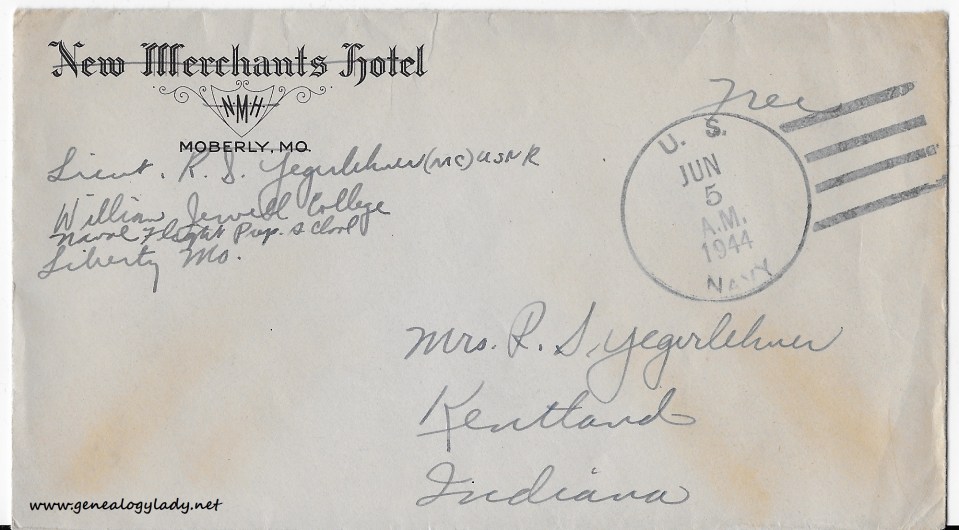 New Merchants Hotel
NMH
MOBERLY, MO.
Free
U. S.
JUN
5
A.M.
1944
NAVY
Lieut. R. S. Yegerlehner (MC) USNR
William Jewell College
Naval Flight Prep. School
Liberty Mo.
Mrs. R. S. Yegerlehner
Kentland
Indiana
www.genealogylady.net